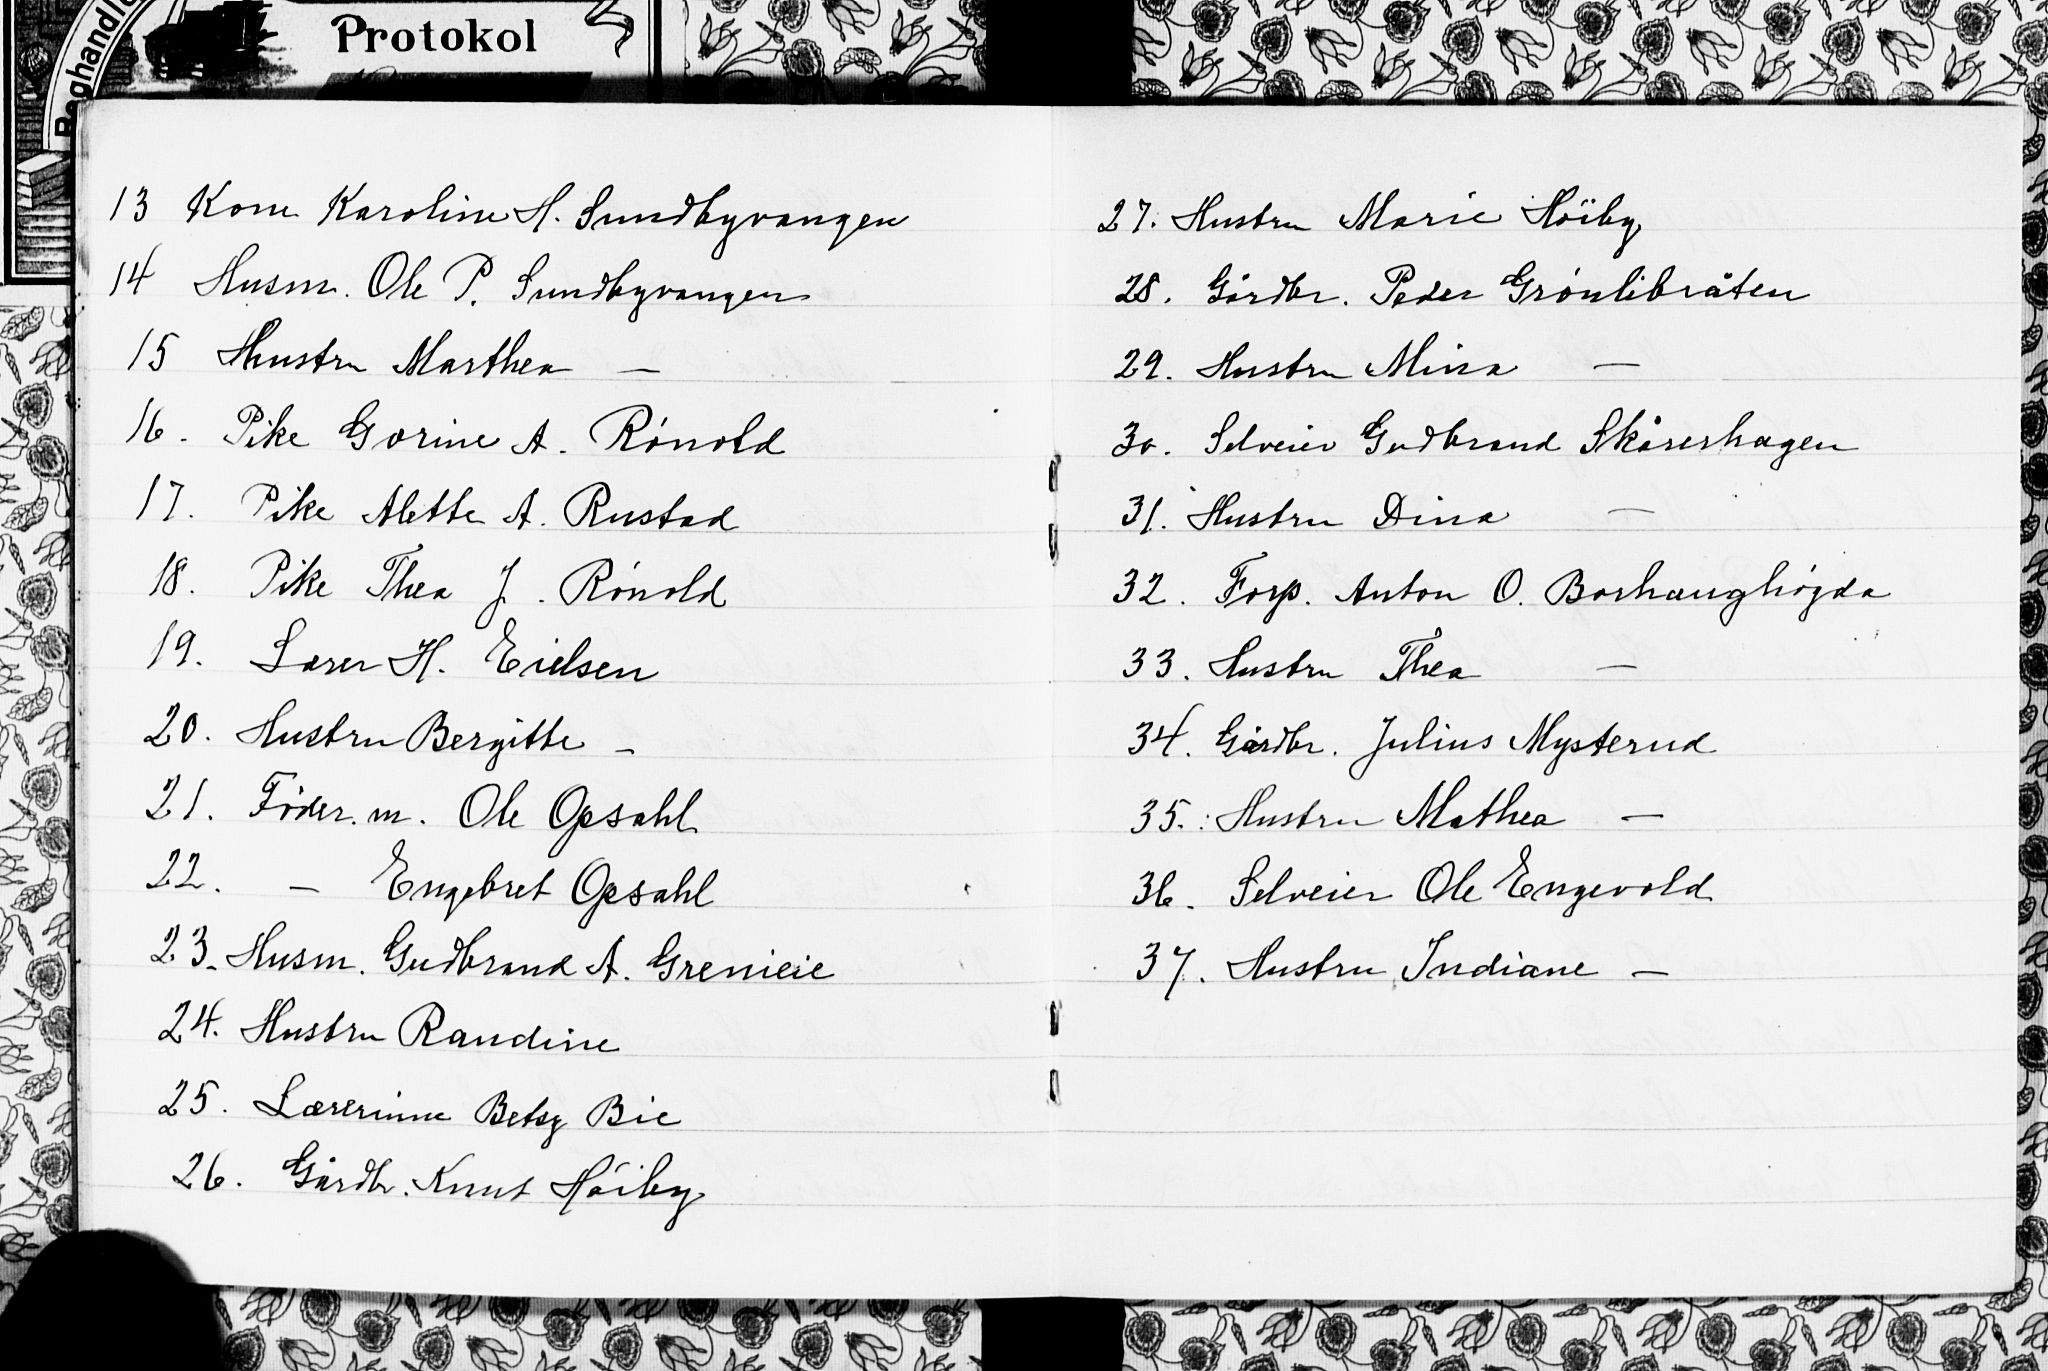 Protokol
13 Kone Karoline H. Sundbyvangen
14 Husm. Ole P. Sundbyvangen
15 Hustru Marthea —
16. Pike Gorine A. Rónold
17. Pike Alette A. Rustad
18. Pike Thea J. Rónold
19. Lærer H. Eielsen
20. Hustru Bergitte —
21. Föder.m. Ole Opsahl
22. — Engebret Opsahl
23. Husm. Gudbrand A. Grenieie
24. Hustru Randine
25. Lærerinne Betsy Bie
26. Gårdbr. Knut Höiby
27. Hustru Marie Höiby
28. Gårdbr. Peder Grónlibråten
29. Hustru Mina —
30. Selveier Gudbrand Skårerhagen
31. Hustru Dina —
32. Forp. Anton O. Borhaughógda
33. Hustru Thea —
34. Gårdbr. Julius Mysterud
35. Hustru Mathea —
36. Selveier Ole Engevold
37. Hustru Indiane —